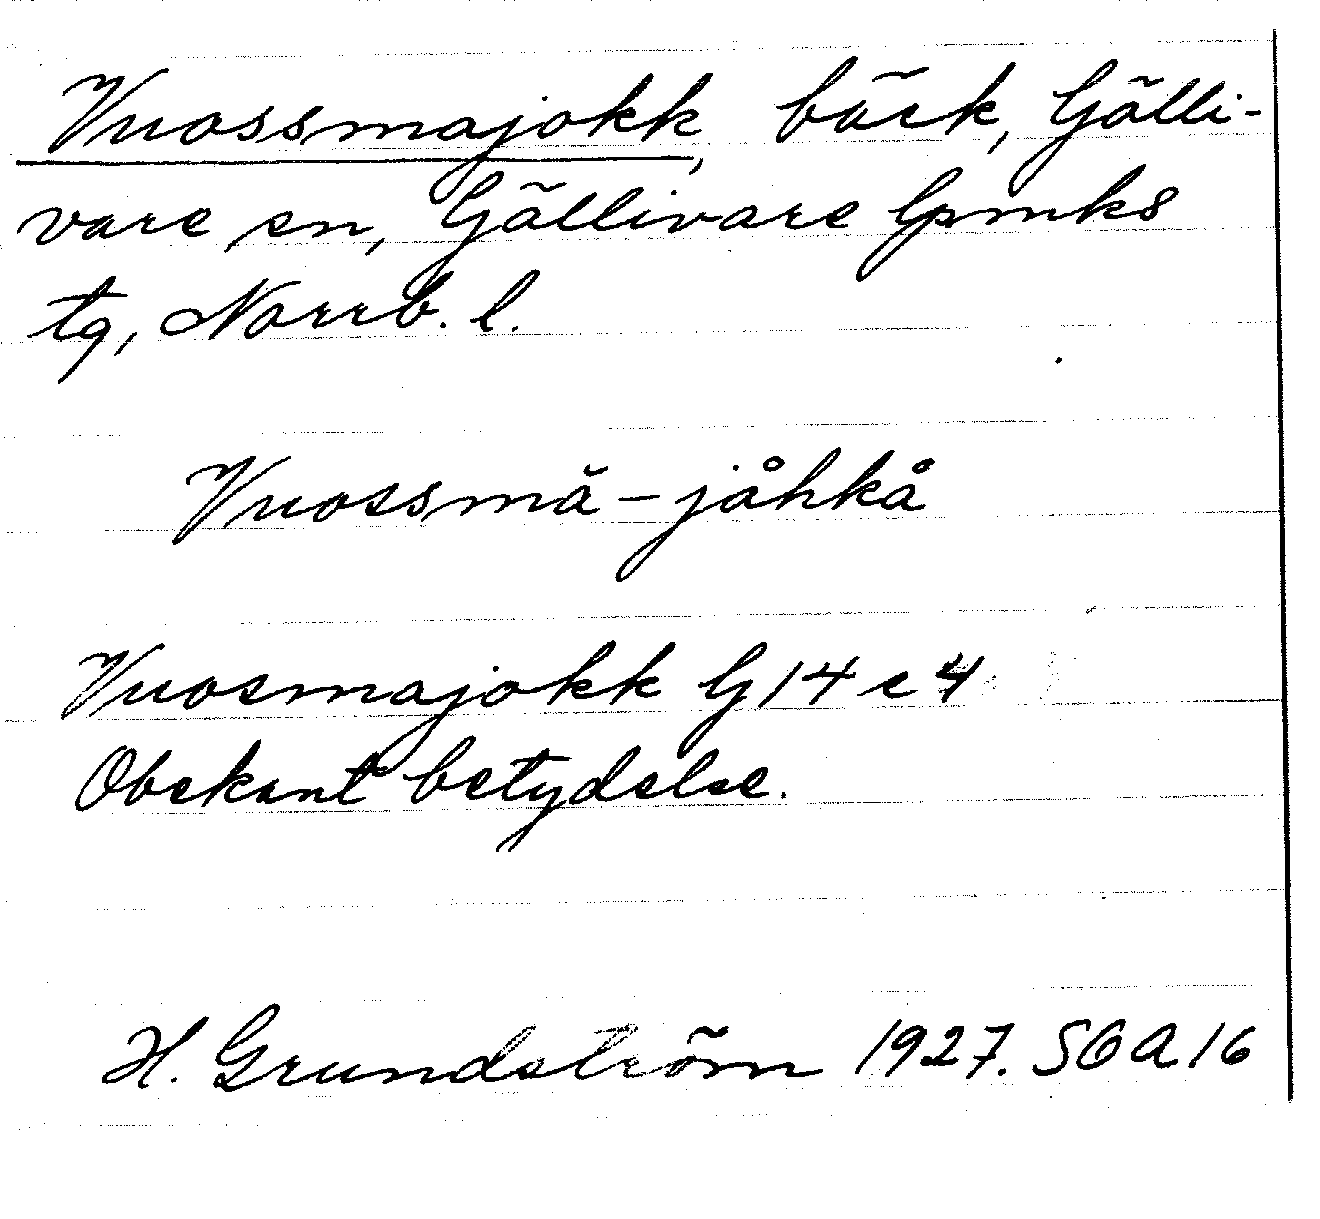 Vuossmajokk, bäck, Gälli-
vare sn, Gällivare lpmks
tg, Norrb. l.
Vuossmă-jåhkå
Vuosmajokk G 14 c 4
Obekant betydelse.
H. Grundström 1927. SOA 16